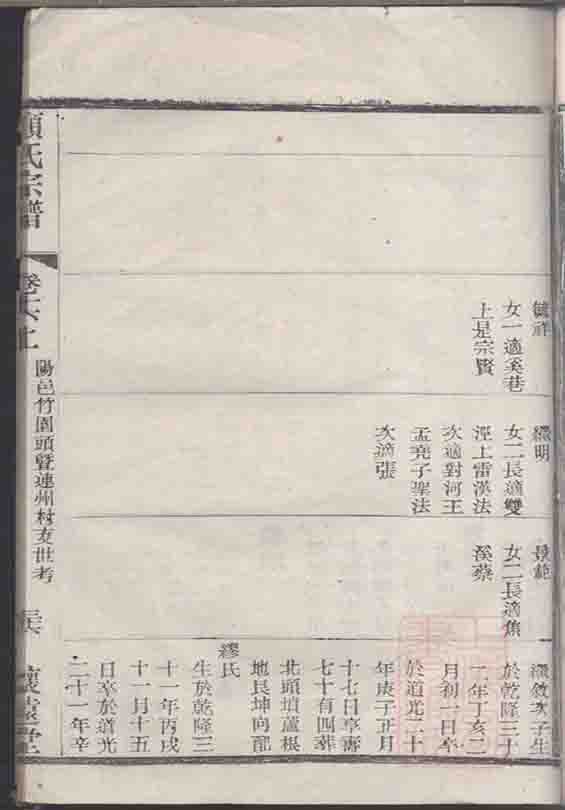 毓祥
女一適奚巷
上是宗賢
繼明
女二長適雙
涇上雷漢法
次適對河王
孟堯子聖法
次適張
景範
女二長適焦
溪蔡
繼敘次子生
於乾隆三十
二年丁亥二
月初一日卒
於道光二十
年庚子正月
十七日享壽
七十有四葬
北頭墳蘆根
地艮坤向配
繆氏
生於乾隆三
十一年丙戌
十一月十五
日卒於道光
二十一年辛
氏宗譜
卷六上
陽邑竹園頭暨連州村支世考